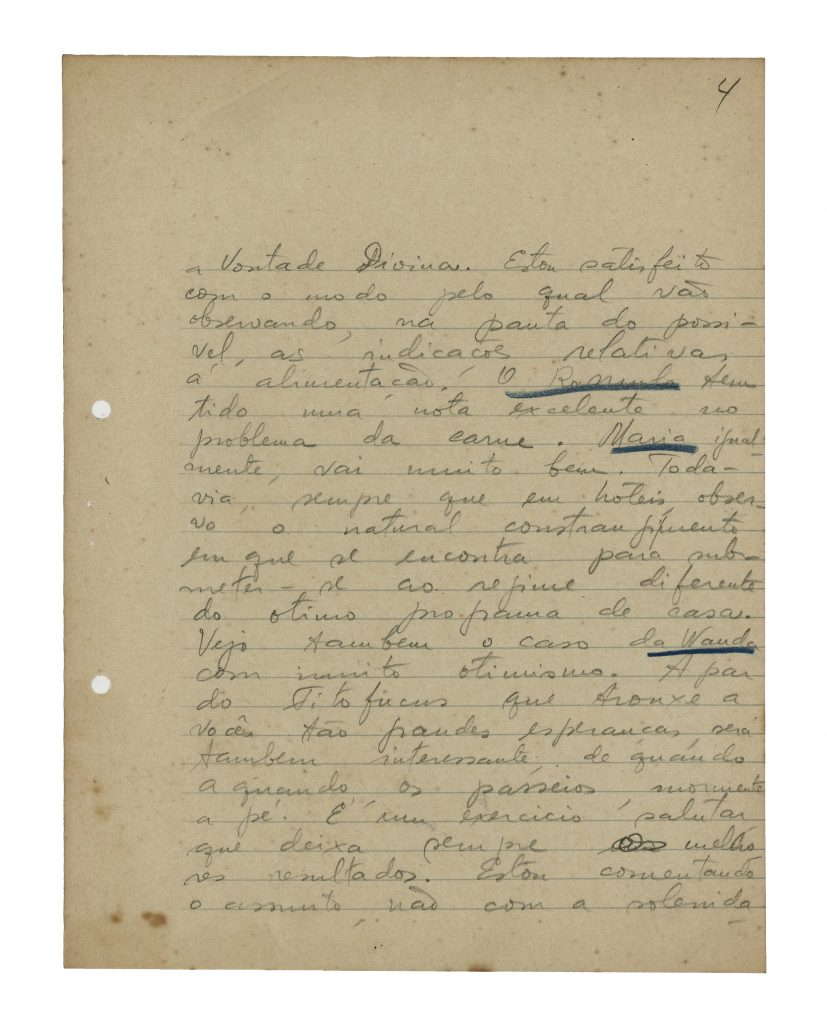 4
a Vontade Divina. Estou satisfeito
com o modo pelo qual vão
observando, na pauta do possi-
vel, as indicações relativas
á alimentação. O Romulo tem
tido uma nota excelente no
problema da carne. Maria igual-
mente, vai muito bem. Toda-
via, sempre que em hóteis obser-
vo o natural constrangimento
em que se encontra para sub-
meter-se ao regime diferente
do otimo programa de casa.
Vejo tambem o caso da Wanda
com muito otimismo. A par
do Titofucus que trouxe a
vocês tão grandes esperanças, será
tambem interessante, de quando
a quando, os passeios mormente
a pé. É um exercicio salutar
que deixa sempre melho
res resultados. Estou comentando
o assunto, não com a solenida